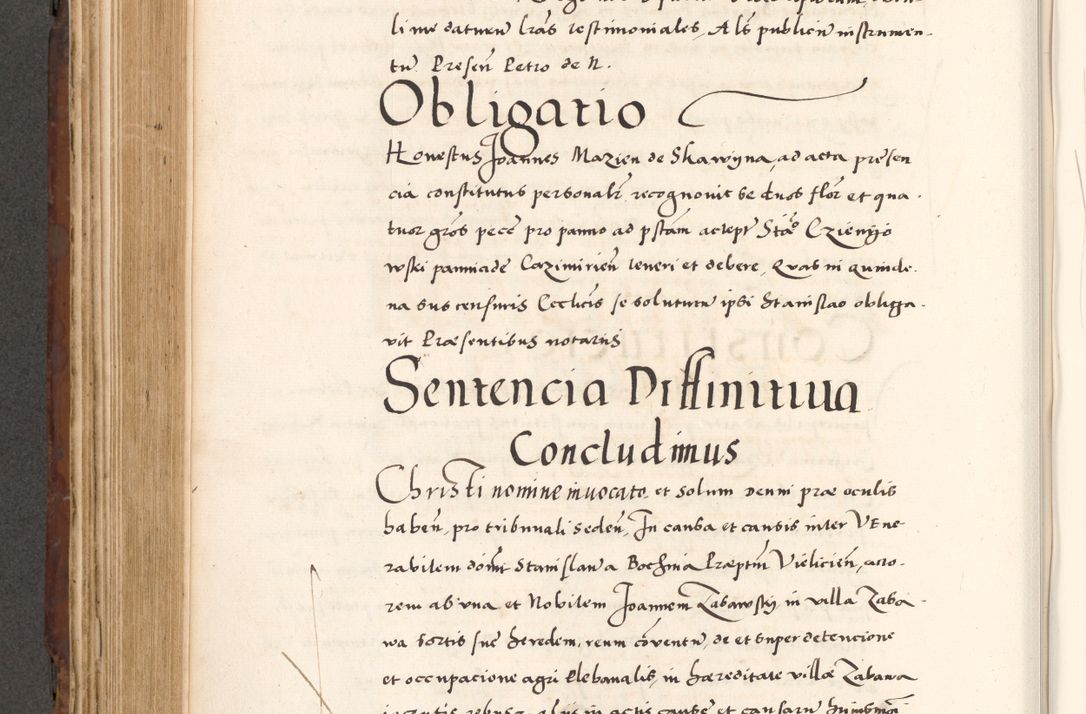 li me daturum lras testimoniales, Als publicū instrumen-
tū Presen̄ Petro de N.
Obligatio
Honestus Joannes Mazien de Skawyna, ad acta presen
cia constitutus personalr̄ recognovit se duos flor̄ et qua-
tuor grōs pecc̄ pro panno ad pstām accept̄ Stāo Czienyo
wski panniade Cazimirien̄ teneri et debere, Quas in quinde-
na sus censuris Ecclicis se soluturū ipsi Stanislao obliga-
vit Præsentibus notariis
Sentencia Diffinitiua
Concludimus
Christi nomine invocato et solum deum præ oculis
haben̄, pro tribunali seden̄, In causa et causis inter Vene-
rabilem domī Stanislaū a Bochnia Præptm̄ Vielicien̄, acto-
rem ab una et Nobilem Joannem Zabawsky in villa Zaba-
wa sortis suę heredem, reum cōventū, de et super detencione
et occupacione agri Plebanalis, in hæreditate villæ Zabawa